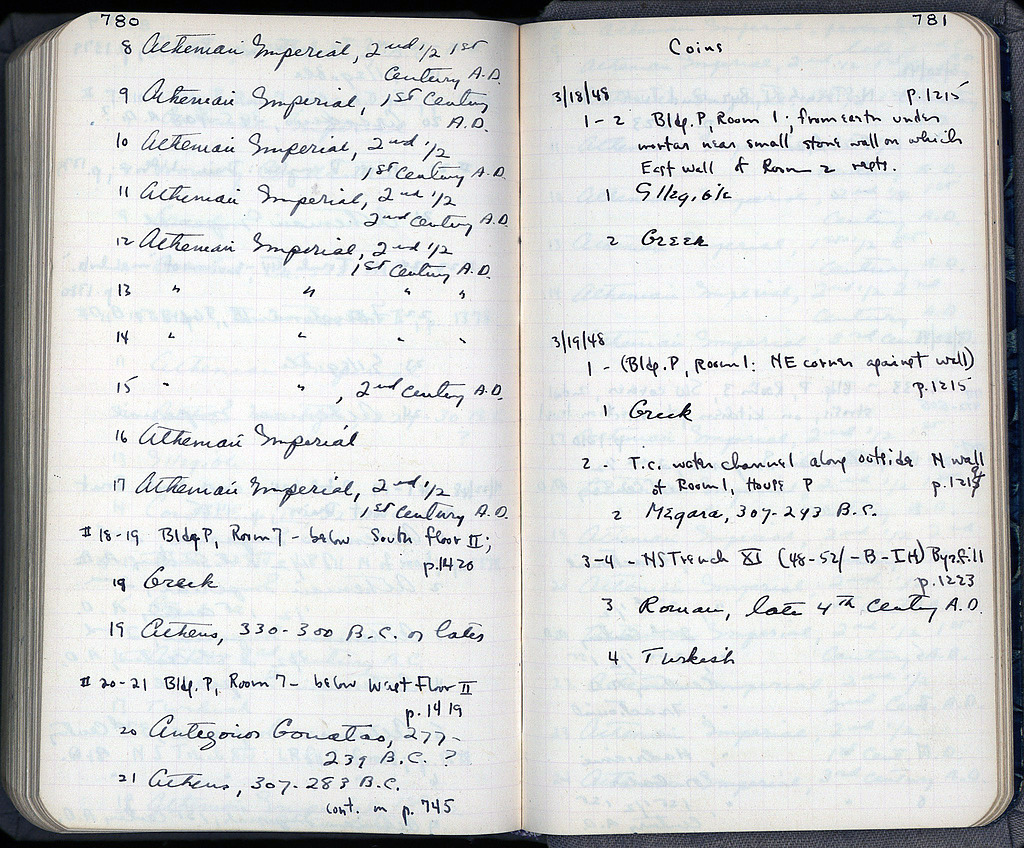 780
8 Athenian Imperial, 2nd 1/2 1st
Century A.D.
9 Athenian Imperial, 1st Century
A.D.
10 Athenian Imperial, 2nd 1/2
1st Century A.D.
11 Athenian Imperial, 2nd 1/2
2nd Century A.D.
12 Athenian Imperial, 2nd 1/2
1st Century A.D.
13 " " " "
14 " " " "
15 " " , 2nd century A.D.
16 Athenian Imperial
17 Athenian Imperial, 2nd 1/2
1st Century A.D.
# 18-19 Bldg. P, Room 7 - below South floor II;
p.1420
18 Greek
19 Athens, 330-300 B.C. or later
# 20-21 Bldg. P, Room 7 - below West Floor II
p.1419
20 Antigonos Gonatas, 277-
239 B.C. ?
21 Athens, 307-283 B.C.
cont. on p. 745
781
Coins
3/18/48 p.1215
1-2 Bldg. P, Room 1; from earth under
mortar near small stone wall on which
East wall of Room 2 rests.
1
2 Greek
3/19/48
1 - (Bldg. P, Room 1: NE corner against wall)
p.1215
1 Greek
2 - T.c. water channel along outside N wall
of Room 1, House P
2 Megara, 307-243 B.C.
3-4 - NS Trench XI (48-52/-B-IH) Byz. fill
p.1223
3 Roman, late 4th Century A.D.
4 Turkish